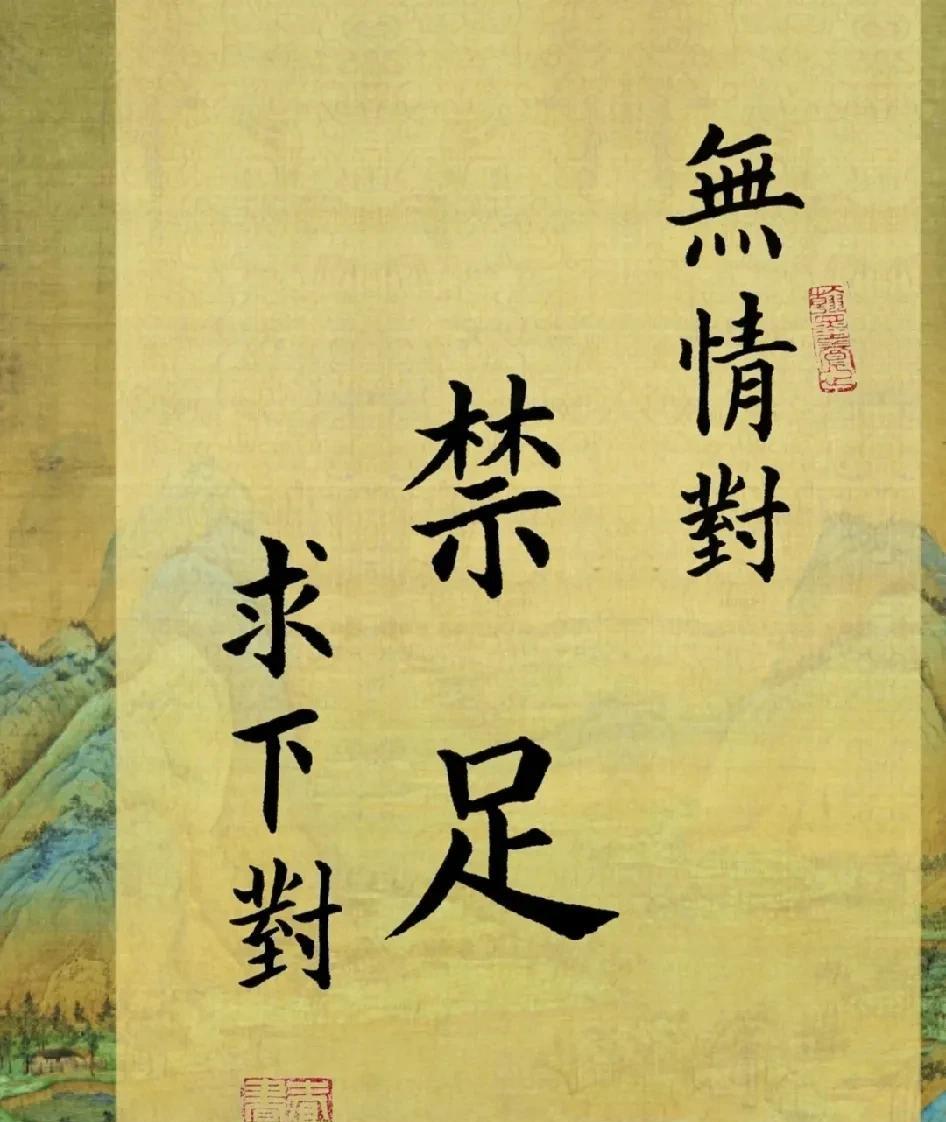 無情對
禁足
求下對